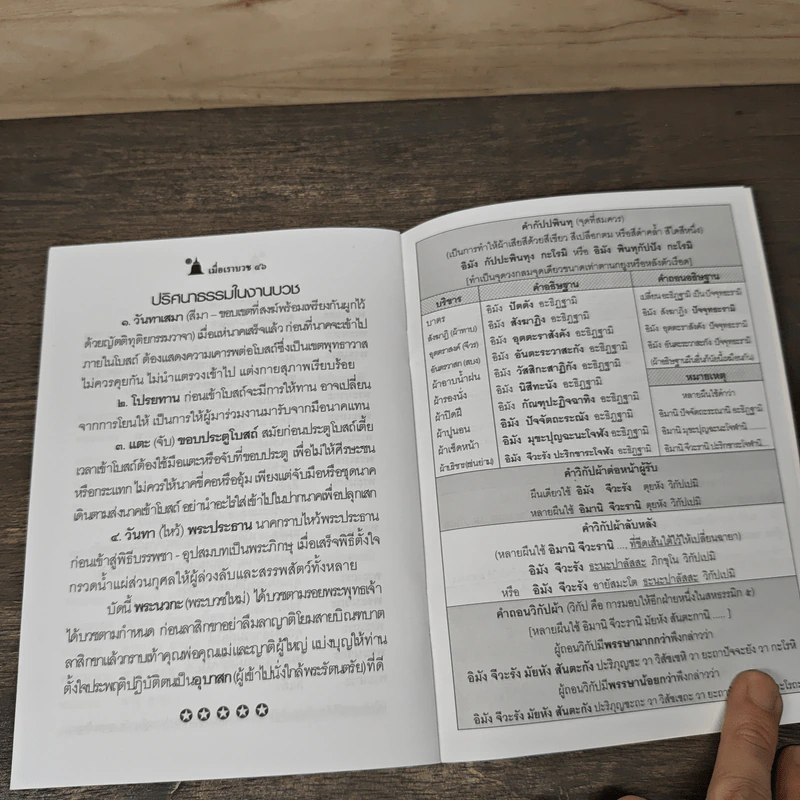 เมื่อเราบวช ๔๖
ปริศนาธรรมในงานบวช
๑. วันทาเสมา (สีมา – ขอบเขตที่สงฆ์พร้อมเพรียงกันผูกไว้
ด้วยญัตติทุติยกรรมวาจา) เมื่อแห่นาคเสร็จแล้ว ก่อนที่นาคจะเข้าไป
ภายในโบสถ์ ต้องแสดงความเคารพต่อโบสถ์ซึ่งเป็นเขตพุทธาวาส
ไม่ควรคุยกัน ไม่นำแตรวงเข้าไป แต่งกายสุภาพเรียบร้อย
๒. โปรยทาน ก่อนเข้าโบสถ์จะมีการให้ทาน อาจเปลี่ยน
จากการโยนให้ เป็นการให้ผู้มาร่วมงานมารับจากมือนาคแทน
๓. แตะ (จับ) ขอบประตูโบสถ์ สมัยก่อนประตูโบสถ์เตี้ย
เวลาเข้าโบสถ์ต้องใช้มือแตะหรือจับที่ขอบประตู เพื่อไม่ให้ศีรษะชน
หรือกระแทก ไม่ควรให้นาคขี่คอหรืออุ้ม เพียงแต่จับมือหรือชุดนาค
เดินตามส่งนาคเข้าโบสถ์ อย่านำอะไรใส่เข้าไปในปากนาคเพื่อปลุกเสก
๔. วันทา (ไหว้) พระประธาน นาคกราบไหว้พระประธาน
ก่อนเข้าสู่พิธีบรรพชา - อุปสมบทเป็นพระภิกษุ เมื่อเสร็จพิธีตั้งใจ
กรวดน้ำแผ่ส่วนกุศลให้ผู้ล่วงลับและสรรพสัตว์ทั้งหลาย
บัดนี้ พระนวกะ (พระบวชใหม่) ได้บวชตามรอยพระพุทธเจ้า
ได้บวชตามกำหนด ก่อนลาสิกขาอย่าลืมลาญาติโยมสายบิณฑบาต
ลาสิกขาแล้วกราบเท้าคุณพ่อคุณแม่และญาติผู้ใหญ่ แบ่งบุญให้ท่าน
ตั้งใจประพฤติปฏิบัติตนเป็นอุบาสก (ผู้เข้าไปนั่งใกล้พระรัตนตรัย) ที่ดี
คำกัปปพินทุ (จุดที่สมควร)
(เป็นการทำให้ผ้าเสียสีด้วยสีเขียว สีเปลือกตม หรือสีดำคล้ำ สีใดสีหนึ่ง)
อิมัง กัปปะพินทุง กะโรมิ หรือ อิมัง พินทุกัปปัง กะโรมิ
[ทำเป็นจุดวงกลมจุดเดียวขนาดเท่าตานกยูงหรือหลังตัวเรือด]
บริขาร คำอธิษฐาน คำถอนอธิษฐาน
บาตร อิมัง ปัตตัง อะธิฏฐามิ เปลี่ยน อะธิฏฐามิ เป็น ปัจจุทธะรามิ
สังฆาฏิ (ผ้าทาบ) อิมัง สังฆาฏิง อะธิฏฐามิ อิมัง สังฆาฏิง ปัจจุทธะรามิ
อุตตราสงค์ (จีวร) อิมัง อุตตะราสังคัง อะธิฏฐามิ อิมัง อุตตะราสังคัง ปัจจุทธะรามิ
อันตรวาสก (สบง) อิมัง อันตะระวาสะกัง อะธิฏฐามิ อิมัง อันตะระวาสะกัง ปัจจุทธะรามิ
ผ้าอาบน้ำฝน อิมัง วัสสิกะสาฏิกัง อะธิฏฐามิ (ผ้าอธิษฐานผืนอื่นก็นัยนี้เหมือนกัน)
ผ้ารองนั่ง อิมัง นิสีทะนัง อะธิฏฐามิ หมายเหตุ
ผ้าปิดฝี อิมัง กัณฑุปะฏิจฉาทิง อะธิฏฐามิ หลายผืนใช้คำว่า
ผ้าปูนอน อิมัง ปัจจัตถะระณัง อะธิฏฐามิ อิมานิ ปัจจัตถะระณานิ อะธิฏฐามิ
ผ้าเช็ดหน้า อิมัง มุขะปุญฉะนะโจฬัง อะธิฏฐามิ อิมานิ มุขะปุญฉะนะโจฬานิ.....
ผ้าบริขาร(เช่นย่าม) อิมัง จีวะระ ปะริกขาระโจฬัง อะธิฏฐามิ อิมานิ จีวะรานิ อะธิฏฐามิ
คำวิกัปผ้าต่อหน้าผู้รับ
ผืนเดียวใช้ อิมัง จีวะรัง ตุยหัง วิกัปเปมิ
หลายผืนใช้ อิมานิ จีวะรานิ ตุยหัง วิกัปเปมิ
คำวิกัปผ้าลับหลัง
(หลายผืนใช้ อิมานิ จีวะรานิ ...., ที่ขีดเส้นใต้ไว้ให้เปลี่ยนฉายา)
อิมัง จีวะรัง ธะนะปาลัสสะ ภิกขุโน วิกัปเปมิ
หรือ อิมัง จีวะรัง อายัสมะโต ธะนะปาลัสสะ วิกัปเปมิ
คำถอนวิกัปผ้า (วิกัป คือ การมอบให้อีกฝ่ายหนึ่งในสหธรรมิก ๕)
[หลายผืนใช้ อิมานิ จีวะรานิ มัยหัง สันตะกานิ ...... ]
ผู้ถอนวิกัปมีพรรษามากกว่าพึงกล่าวว่า
อิมัง จีวะรัง มัยหัง สันตะกัง ปะริภุญชะ วา วิสัชเชหิ วา ยะถาปัจจะยัง วา กะโรหิ
ผู้ถอนวิกัปมีพรรษาน้อยกว่าพึงกล่าวว่า
อิมัง จีวะรัง มัยหัง สันตะกัง ปะริภุญชะถะ วา วิสัชเชถะ วา